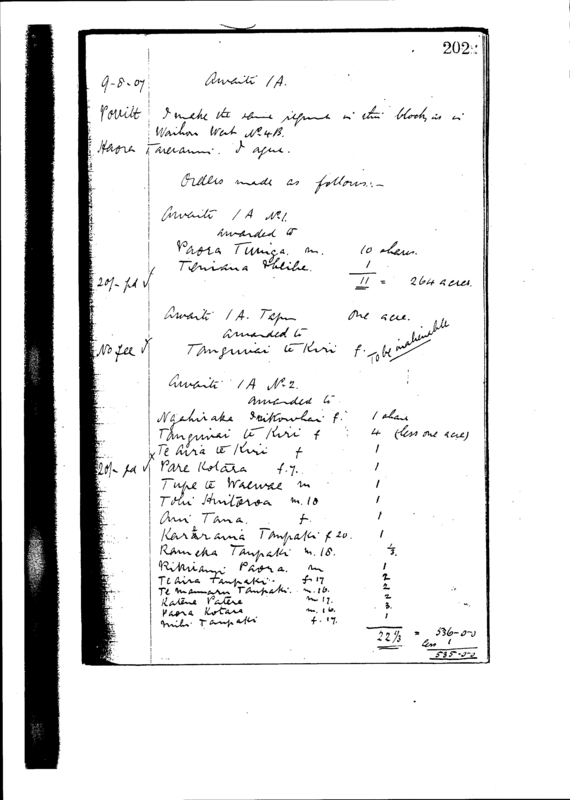 202
9-8-07 Awaiti 1A.
Povitt I make the same in this block, as in
Waihou West No 4B.
Haora Tareranui. I agree.
Orders made as follows:-
Awaiti 1A No 1.
awarded to
Paora Tiniga. m. 10 shares.
1
20/- pd ✓ 11 = 264 acres.
Awaiti 1A. Tapu one acre.
awarded to
No fee ✓ Tanguinai te Kiri f. To be inalienable
Awaiti 1A No 2.
awarded to
Ngahiraka f. 1 share
Tanguinai te Kiri f 4 (less one acre)
Te Aira te Kiri f 1
20/- pd ✓ Pare Kotara f. 7. 1
Tupe te Waewae m 1
Tohi m. 10 1
Ani Tana. f. 1
Kataraina Taupaki f 20. 1
Rameka Taupaki m. 18. 1/3
Paora. m 1
Te Aira Taupaki f 17 2
Te Taupaki. m. 16. 2
Katene Patene m 17. 2
Paora Kotara m. 16. 3
Mihi Taupaki f. 17. 1
22 1/3 = 536-0-0
less 1
535-0-0